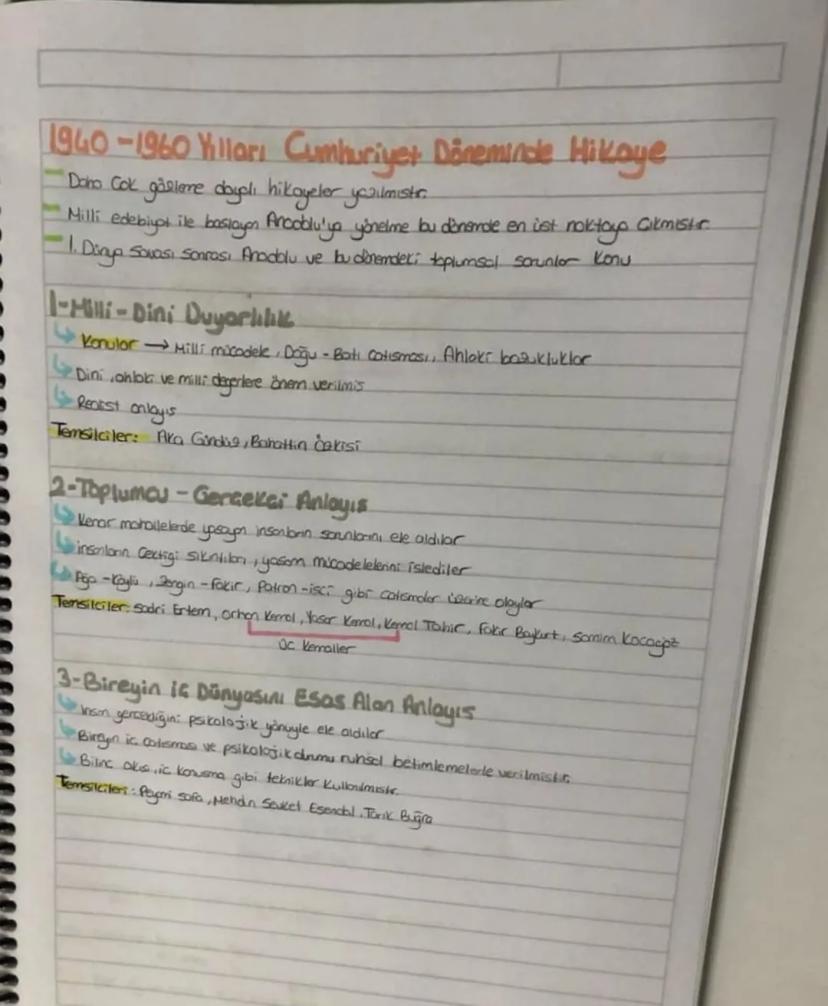 1940-1960 Yılları Cumhuriyet Döneminde Hikaye
Daha çok gözleme dayalı hikayeler yazılmıştır.
Milli edebiyat ile başlayan Anadolu'ya yönelme bu dönemde en üst noktaya çıkmıştır.
1. Dünya savaşı sonrası Anadolu ve bu dönemdeki toplumsal sorunlar konu
1-Milli-Dini Duyarlılık
Konular → Milli mücadele, Doğu-Batı çatışması, Ahlaki bozukluklar
Dini, ahlaki ve milli değerlere önem verilmiş
Realist anlayış
Temsilciler: Aka Gündüz, Bahattin Özkişi
2-Toplumcu-Gerçekçi Anlayış
Kenar mahallelerde yaşayan insanların sorunlarını ele aldılar
insanların çektiği sıkıntıları, yaşam mücadelelerini işlediler
Ağa-Köylü, Zengin-fakir, Patron-işçi gibi çatışmalar üzerine olaylar
Temsilciler: Sadri Ertem, Orhan Kemal, Yaşar Kemal, Kemal Tahir, Fakir Baykurt, Samim Kocagöz
Üç Kemaller
3-Bireyin iç Dünyasını Esas Alan Anlayış
insan gerçekliğini psikolojik yönüyle ele aldılar
Bireyin iç çatışması ve psikolojik durumu ruhsal betimlemelerle verilmiştir.
Bilinç akışı, iç konuşma gibi teknikler kullanılmıştır.
Temsilcileri: Peyami Safa, Memduh Şevket Esendal, Tarık Buğra